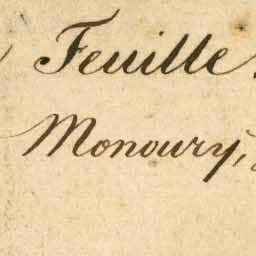 Feuille.
Monoury,